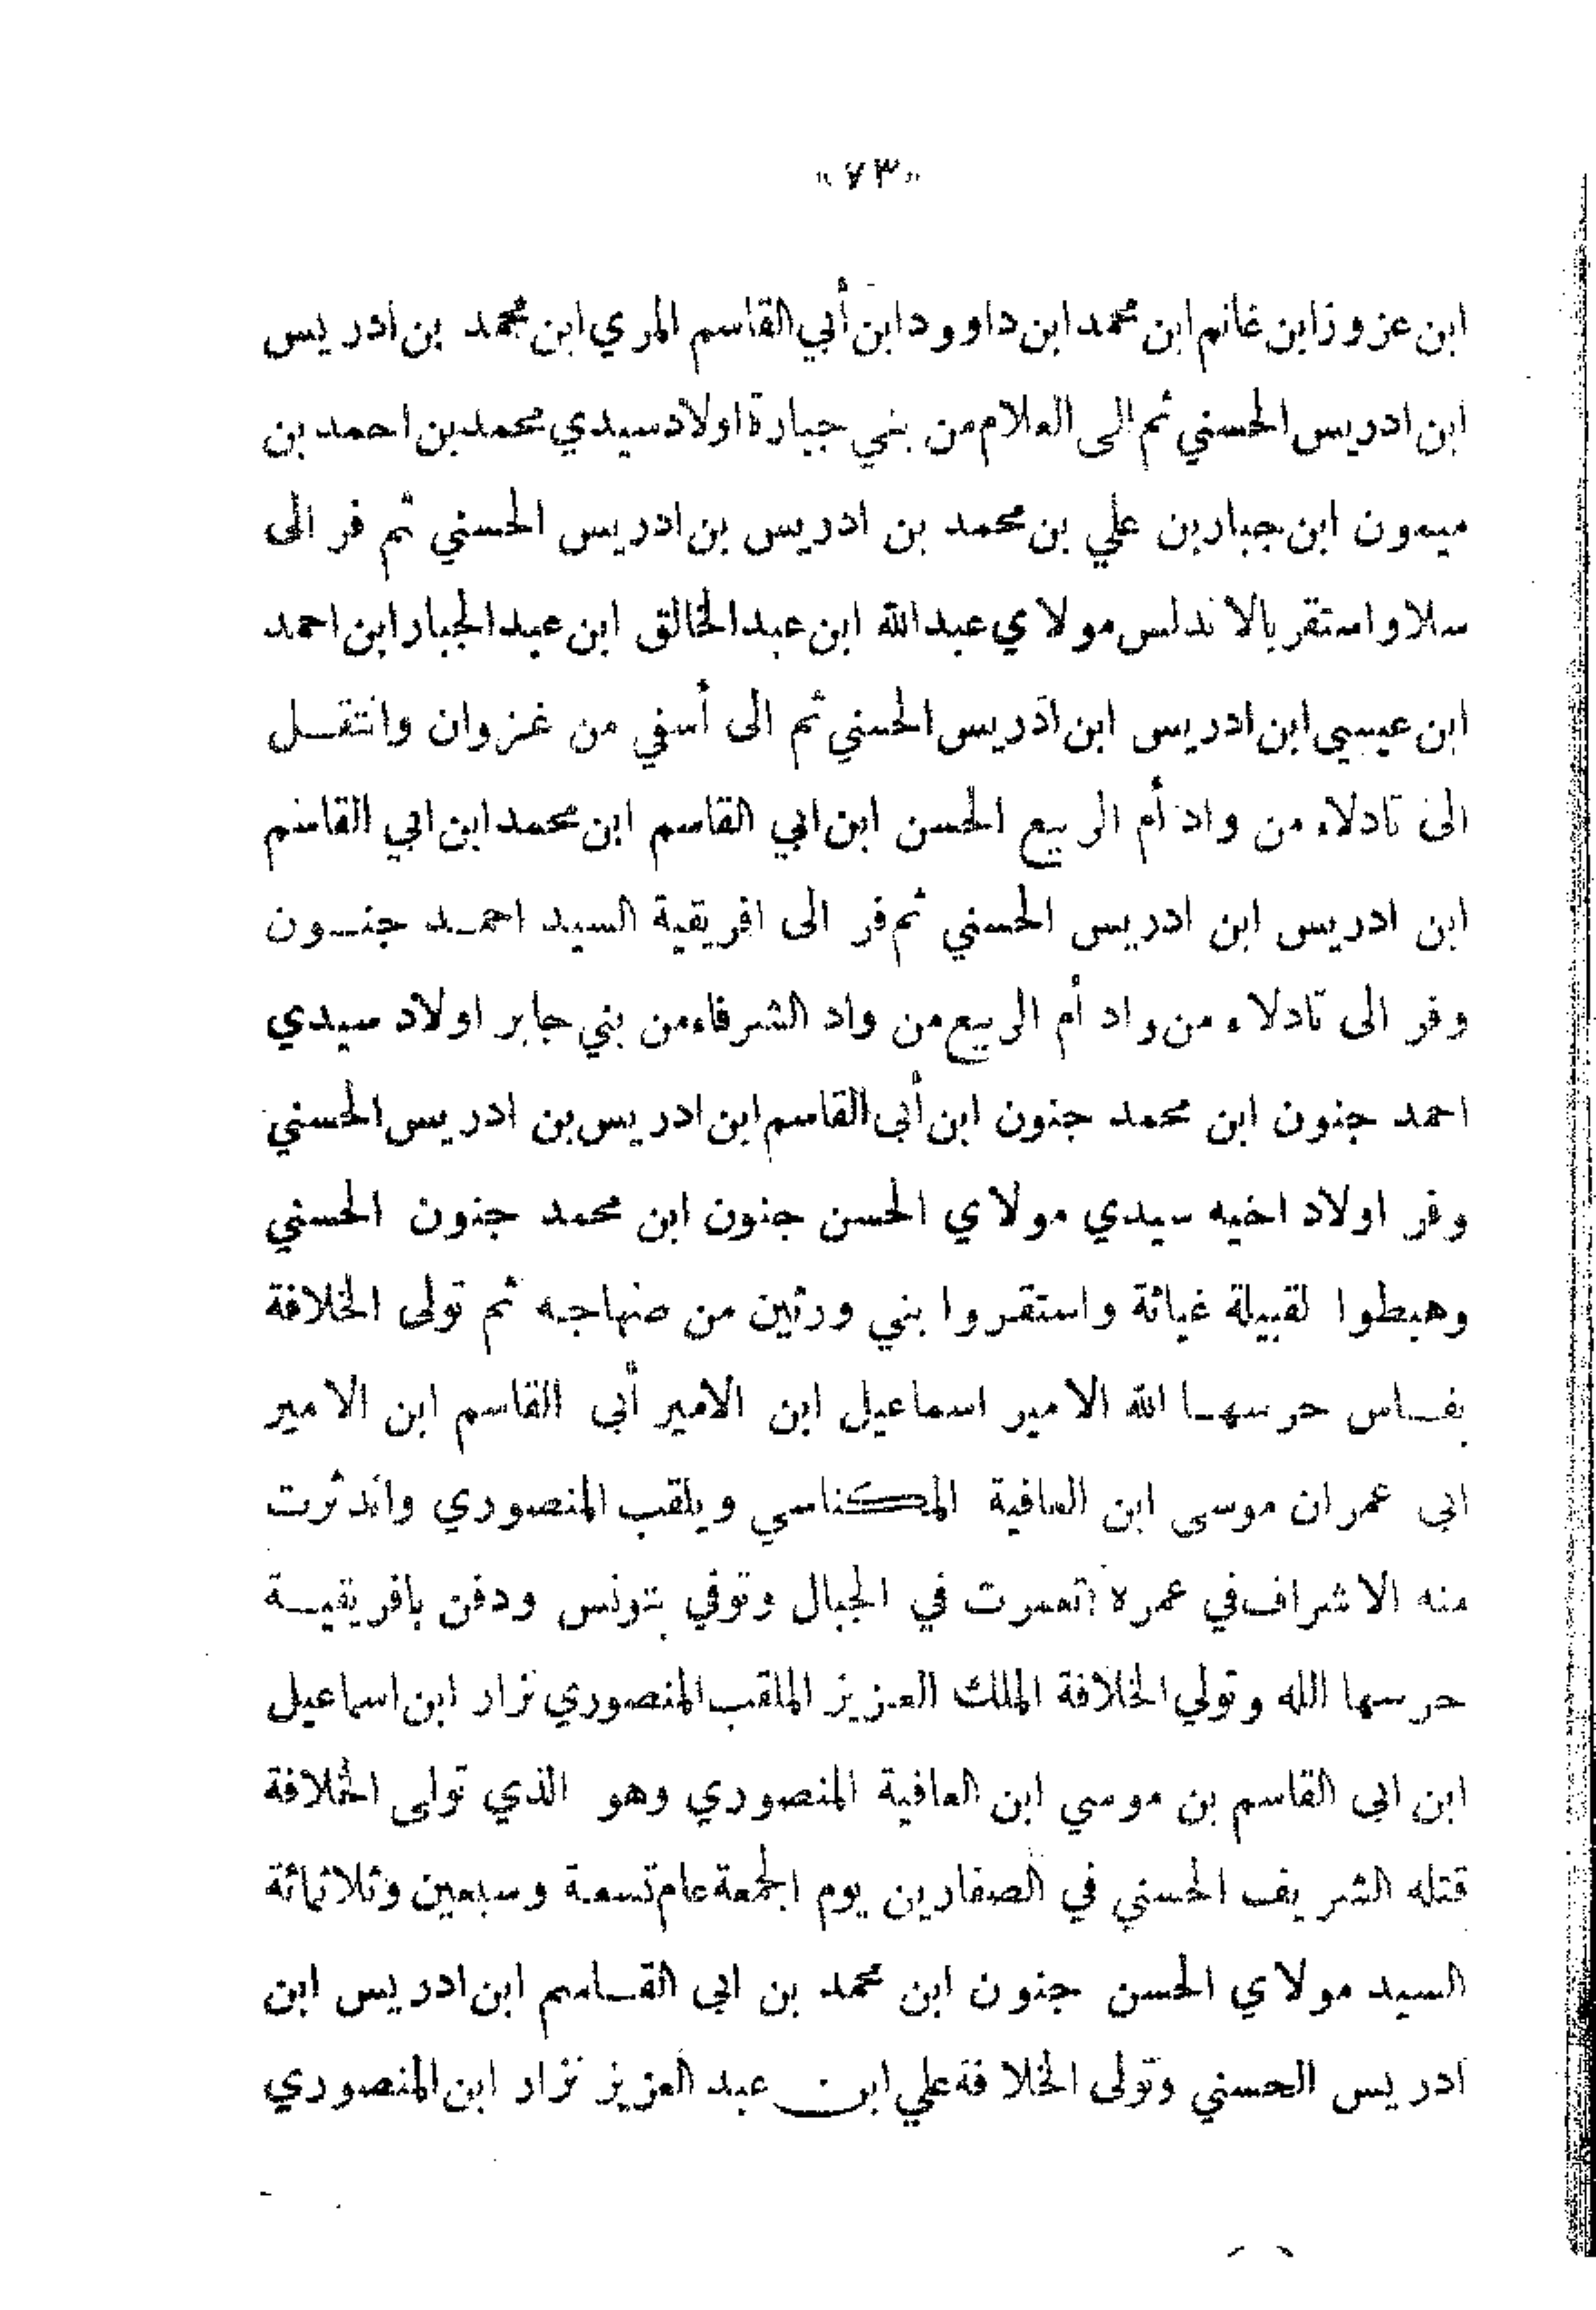 «٧٣»
ابن عزوز ابن غانم ابن محمد ابن داوود ابن أبي القاسم المري ابن محمد بن ادريس
ابن ادريس الحسني ثم الى العلام من بني جبارة اولاد سيدي محمد بن احمد بن
ميمون ابن جبار بن علي بن محمد بن ادريس بن ادريس الحسني ثم فر الى
سلا واستقر بالاندلس مولاي عبد الله ابن عبد الخالق ابن عبد الجبار ابن احمد
ابن عيسى ابن ادريس ابن ادريس الحسني ثم الى أسفي من غزوان وانتقل
الى تادلاء من واد أم الربيع الحسن ابن ابي القاسم ابن محمد ابن ابي القاسم
ابن ادريس ابن ادريس الحسني ثم فر الى افريقية السيد احمد جنون
وفر الى تادلاء من واد أم الربيع من واد الشرفاء من بني جابر اولاد سيدي
احمد جنون ابن محمد جنون ابن أبى القاسم ابن ادريس بن ادريس الحسني
وفر اولاد اخيه سيدي مولاي الحسن جنون ابن محمد جنون الحسني
وهبطوا لقبيلة غياثة واستقروا بني ورثين من صنهاجه ثم تولى الخلافة
بفاس حرسها الله الامير اسماعيل ابن الامير أبى القاسم ابن الامير
ابى عمران موسى ابن العافية المكناسي ويلقب المنصوري واندثرت
منه الاشراف في عمره تعمرت في الجبال وتوفي بتونس ودفن بافريقية
حرسها الله وتولي الخلافة الملك العزيز الملقب المنصوري نزار ابن اسماعيل
ابن ابى القاسم بن موسي ابن العافية المنصوري وهو الذي تولى الخلافة
قتله الشريف الحسني في الصفارين يوم الجمعة عام تسعة وسبعين وثلاثمائة
السيد مولاي الحسن جنون ابن محمد بن ابي القاسم ابن ادريس ابن
ادريس الحسني وتولى الخلافة علي ابن عبد العزيز نزار ابن المنصوري